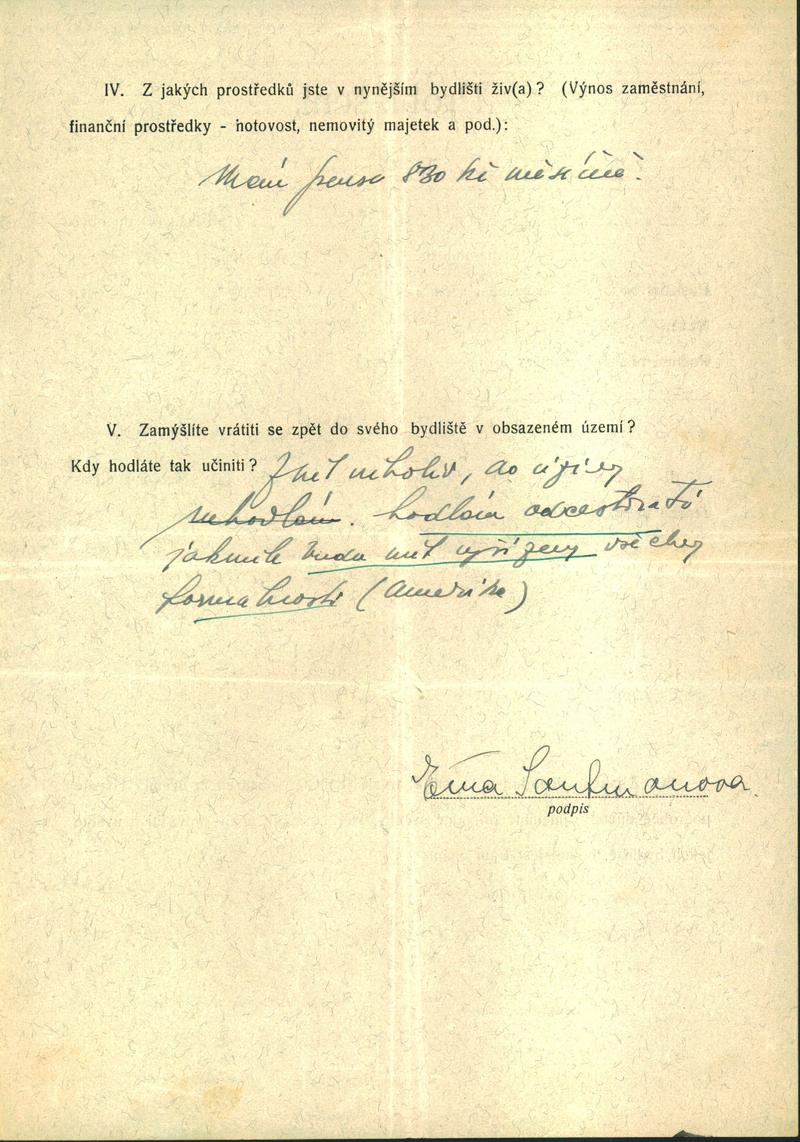 IV. Z jakých prostředků jste v nynějším bydlišti živ(a)? (Výnos zaměstnání,
finanční prostředky - hotovost, nemovitý majetek a pod.):
Mám pensi 830 Kč měsíčně.
V. Zamýšlíte vrátiti se zpět do svého bydliště v obsazeném území?
Kdy hodláte tak učiniti?
nehodlám. hodlám odcestovati
jakmile budu mít vyřízeny všechny
formalnosti (Amerika)
Ema
podpis